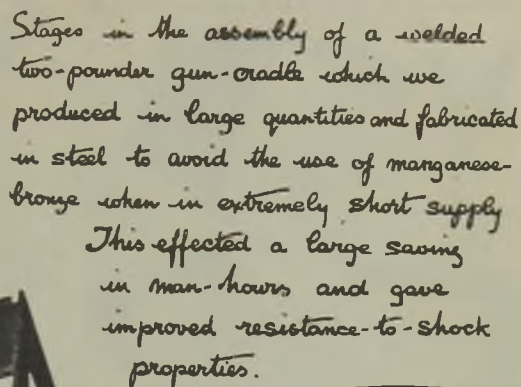 Stages in the assembly of a welded
two-pounder gun-cradle which we
produced in large quantities and fabricated
in steel to avoid the use of manganese-
bronze when in extremely short supply
This effected a large saving
in man-hours and gave
improved resistance-to-shock
properties.